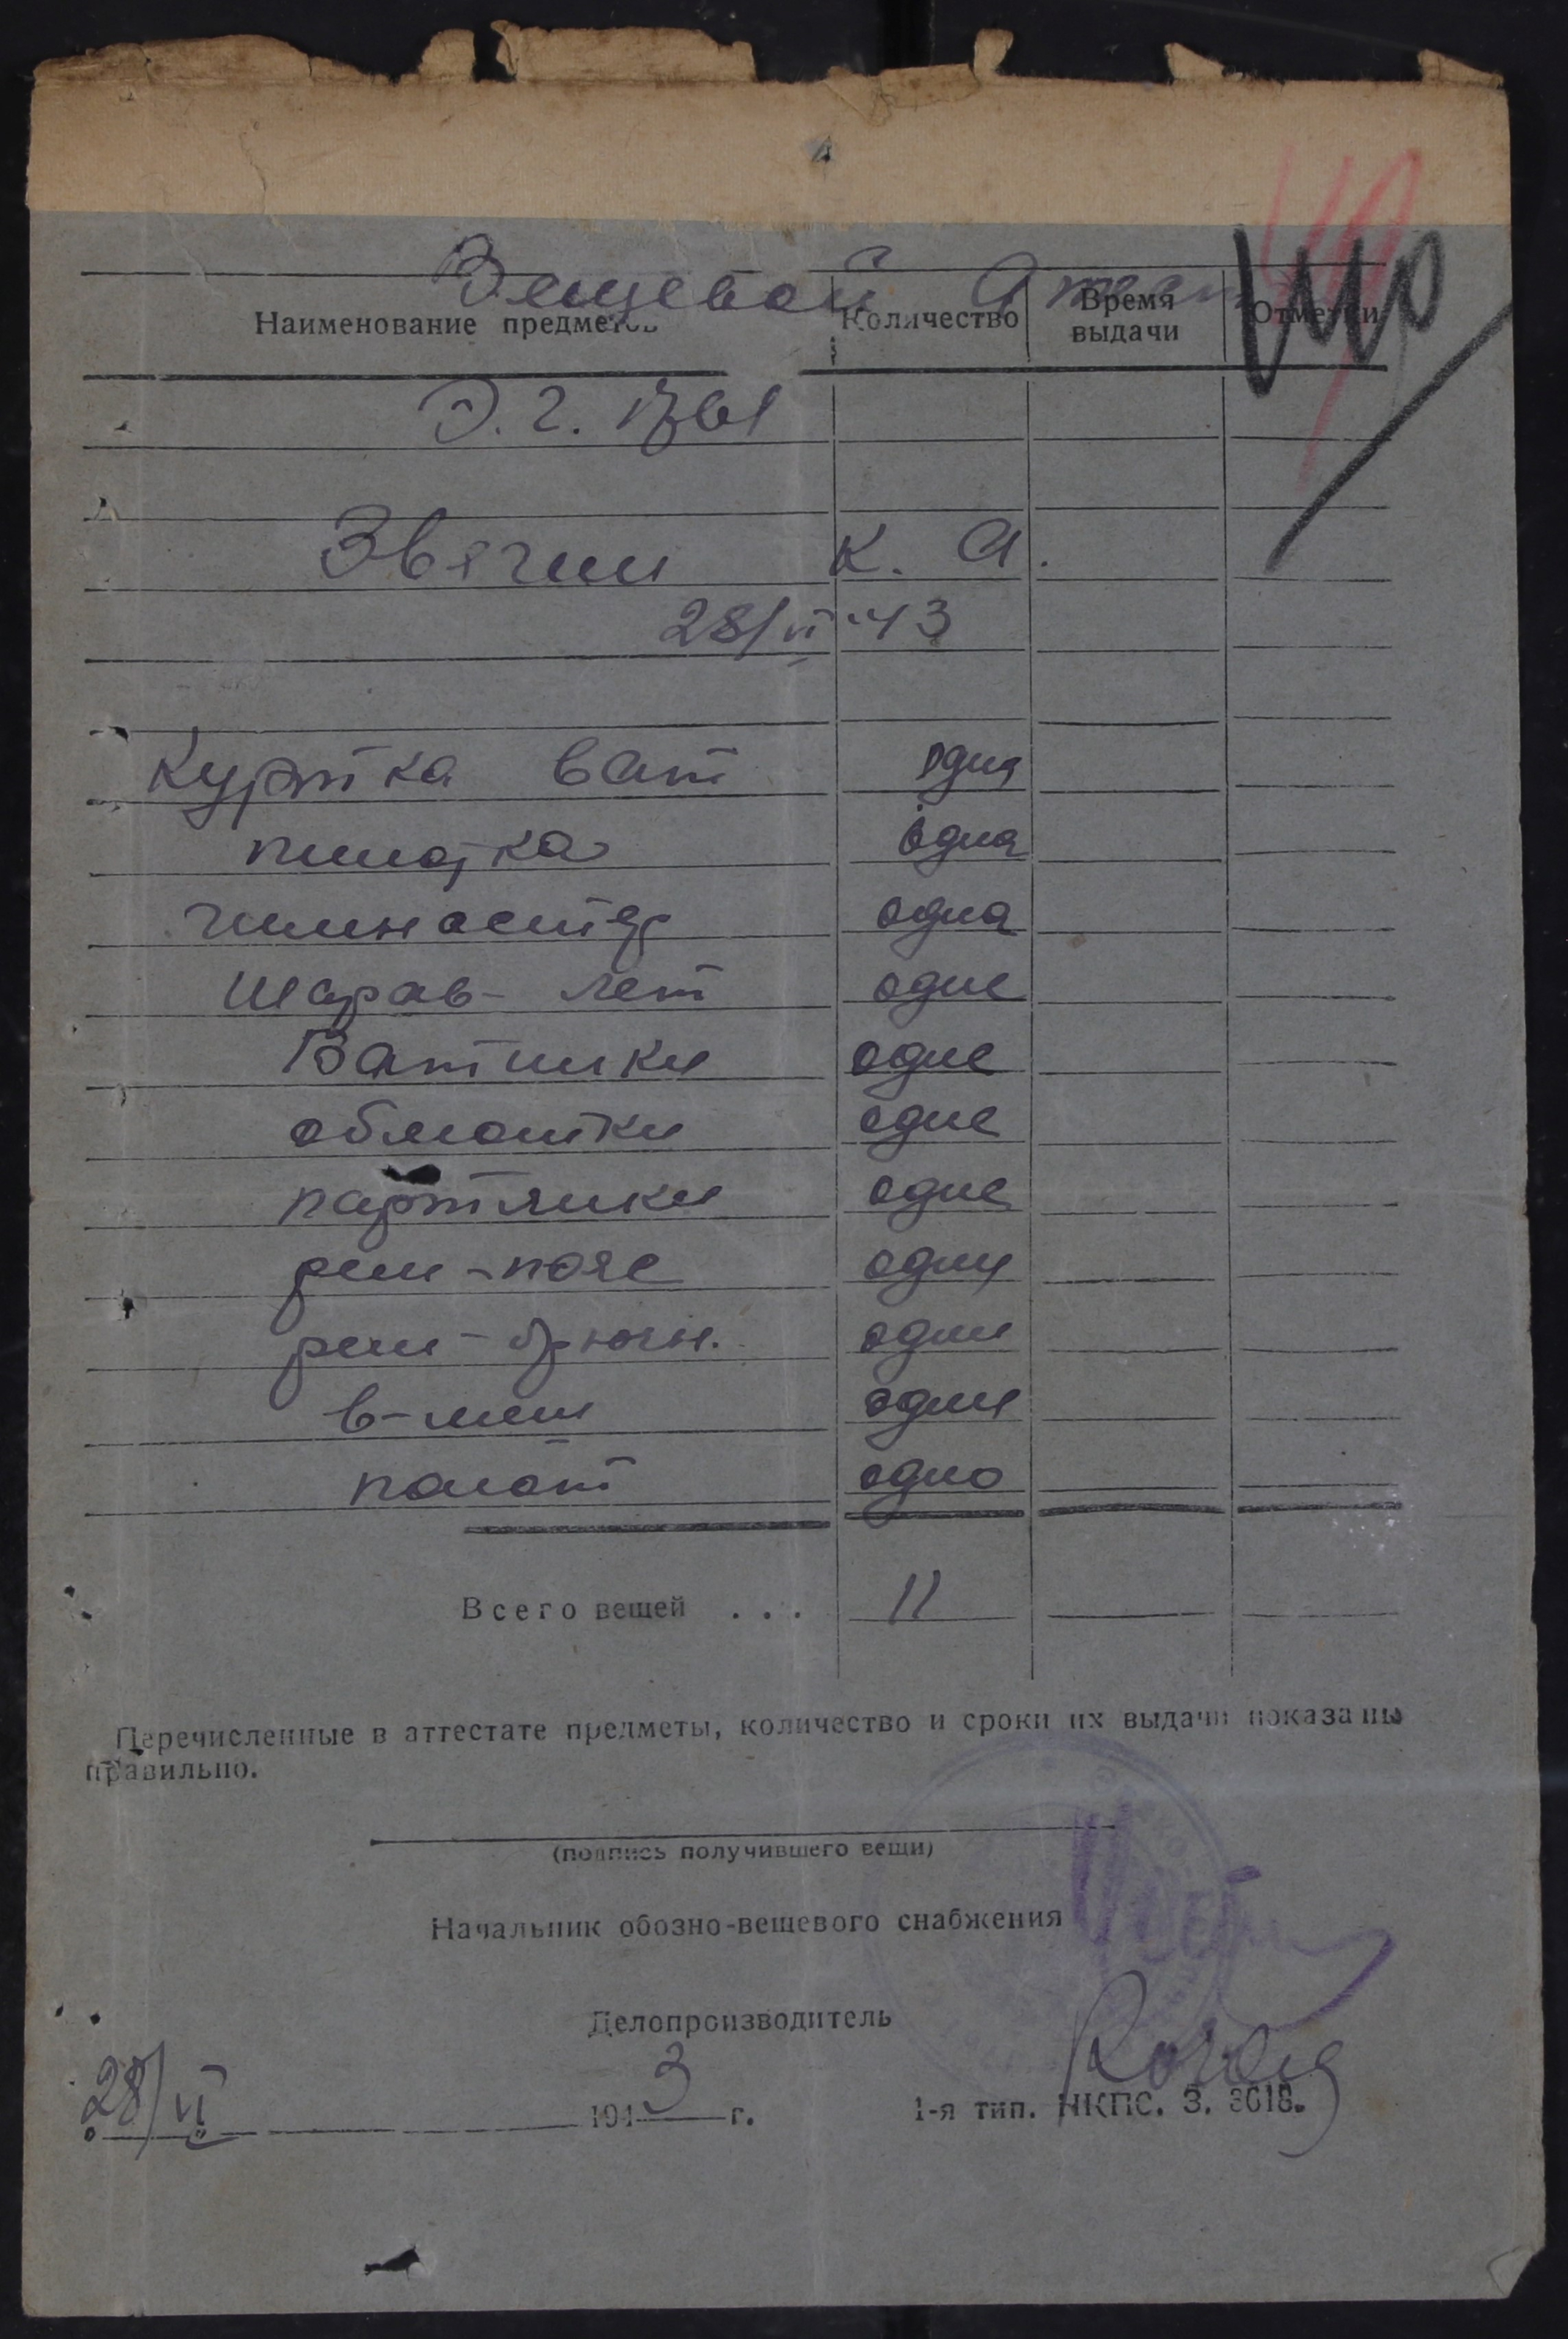 Вещевой Атт
Наименование предметов Количество Время выдачи Отметки
Э.Г. 1761
Звягин К. А.
28/VI-43
Куртка ват одна
пилотка одна
гимнастер одна
Шарав- лет одне
Ватники одне
обмотки одне
партянки одне
рем-пояс один
рем-брючн. один
в-меш один
полот одно
Всего вещей . . . 11
Перечисленные в аттестате предметы, количество и сроки их выдачи показаны
правильно.
(подпись получившего вещи)
Начальник обозно-вещевого снабжения
Делопроизводитель
28/VI 1943 г.
1-я тип. НКПС. З. 3618.